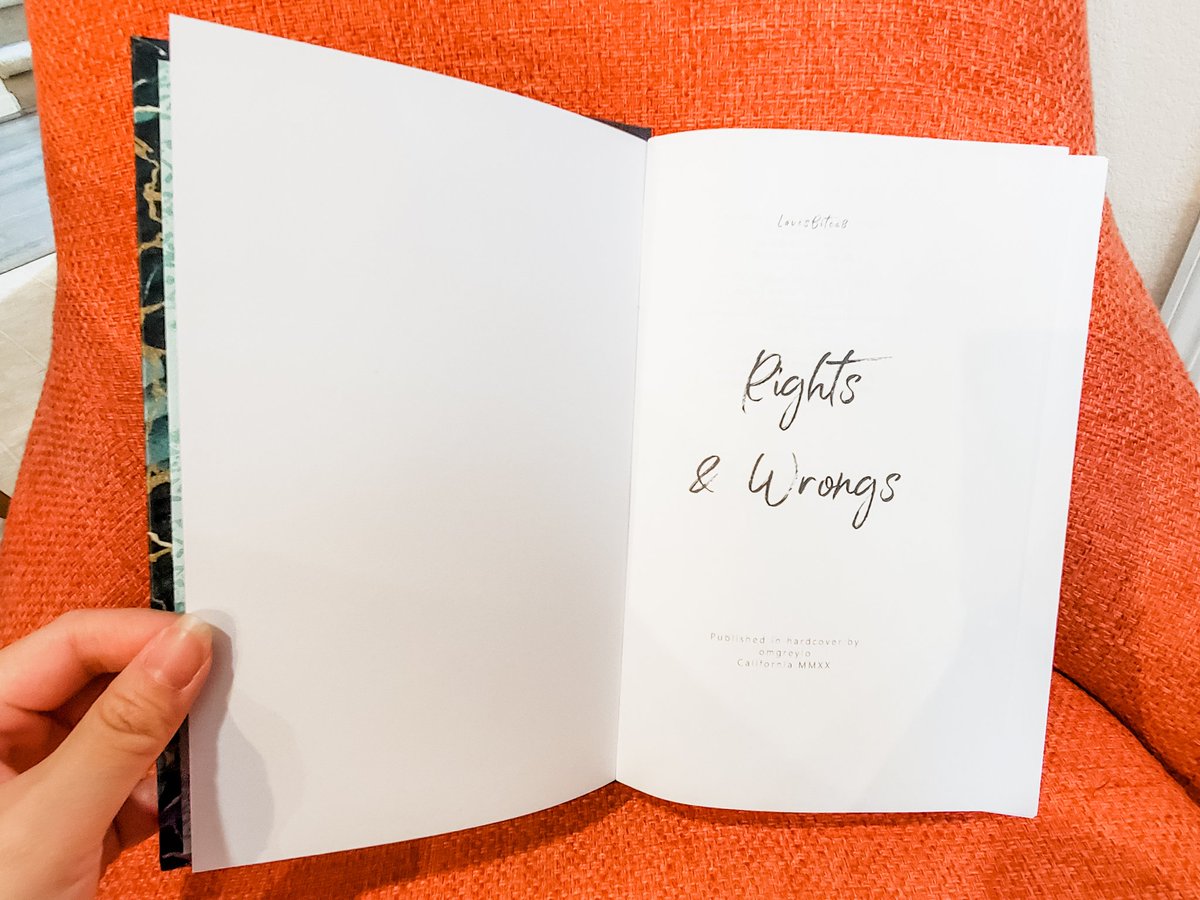 LovesBites8
Rights
& Wrongs
Published in hardcover by
omgreylo
California MMXX